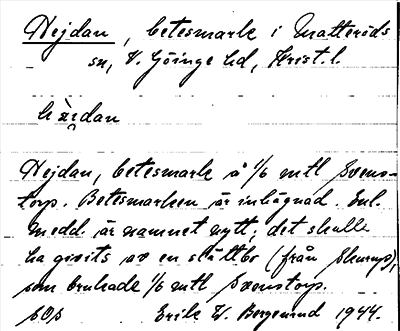 Hejdan, betesmark i Matteröds
sn, V. Göinge hd, Krist. l.
hài̯dan
Hejdan, betesmark å 1/6 mtl Svens-
torp. Betesmarken är inhägnad. Enl.
medd. är namnet nytt; det skulle
ha givits av en skåltbo (från Skurup),
som brukade 1/6 mtl Svenstorp.
Erik W. Bergstrand 1944.